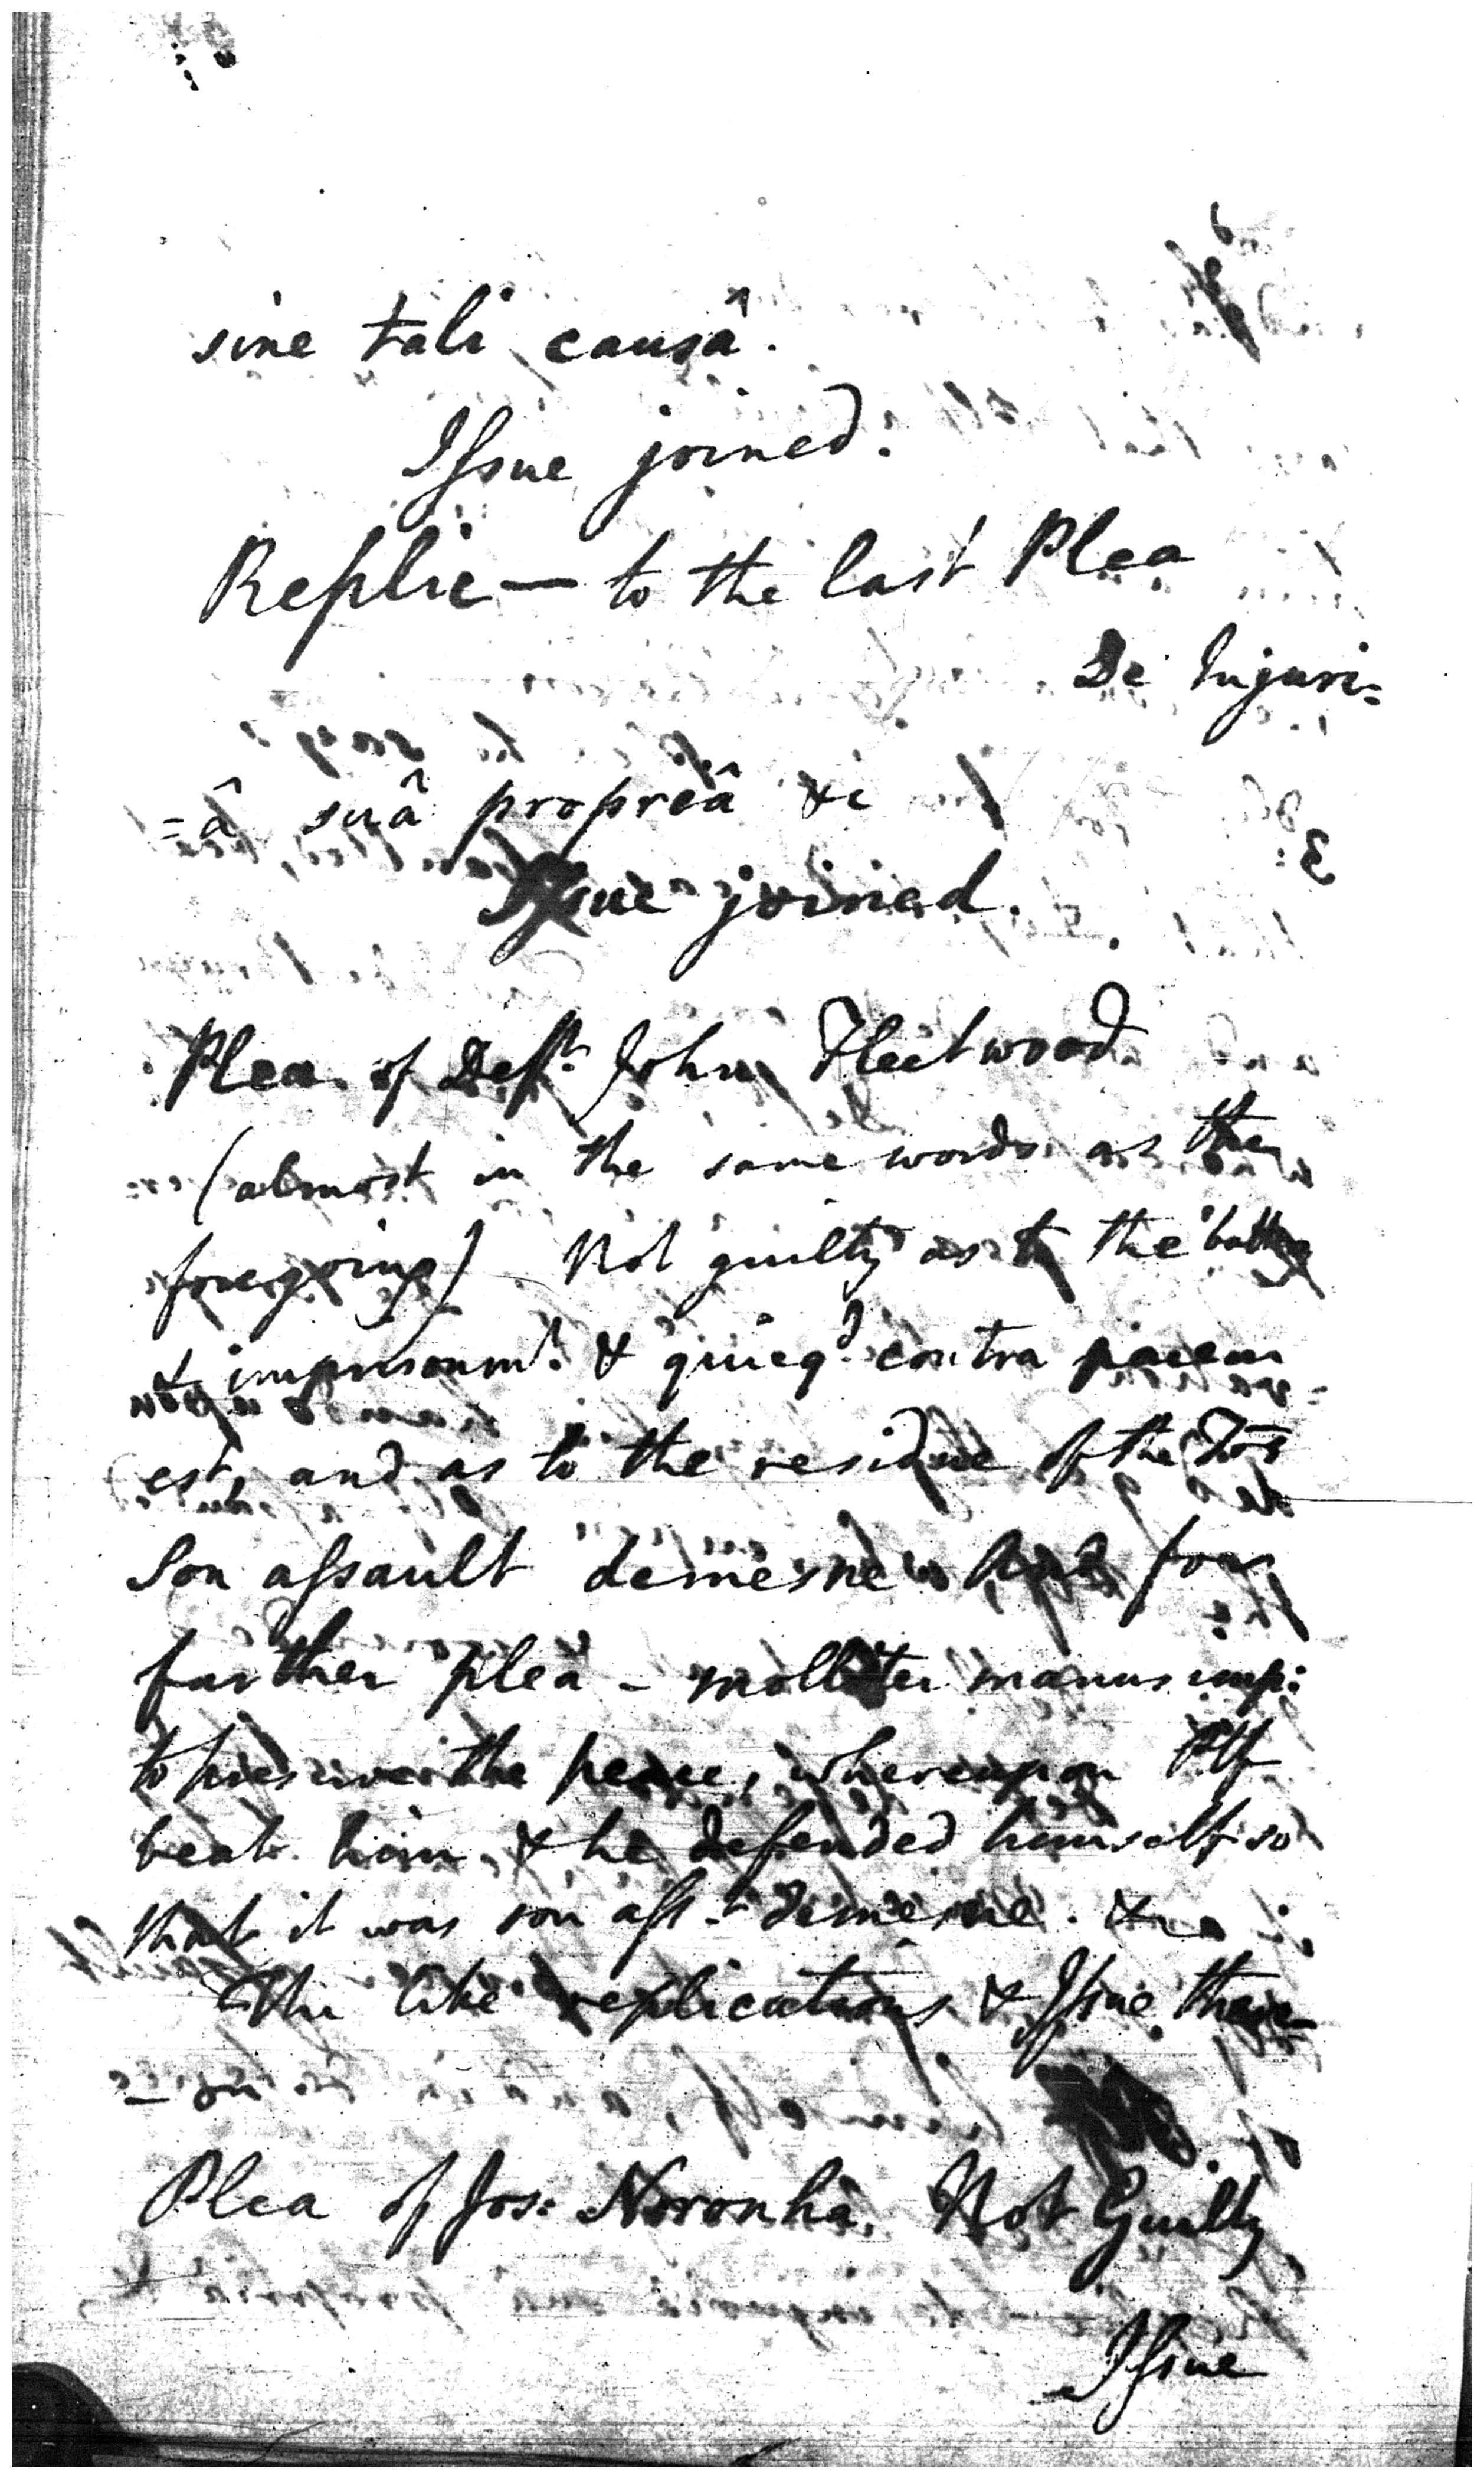 sine tali causâ.
Issue joined.
Replic— to the last Plea
De Injuri=
=â suâ propreâ &c
Issue joined.
Plea of Deft. John Fleetwood
(almost in the same words as the
foregoing) Not guilty as to the battery
& imprisonmt. & quicqd. contra pacem
est, and as to the residue of the Tres
Son assault demesne And for
farther plea - molliter manus imp:
to preserve the peace, whereupon Plf
beat him, & he defended himself so
that it was son asst. demesne.
The like replications & Issue there-
- on
Plea of Jos: Noronha. Not Guilty
Issue